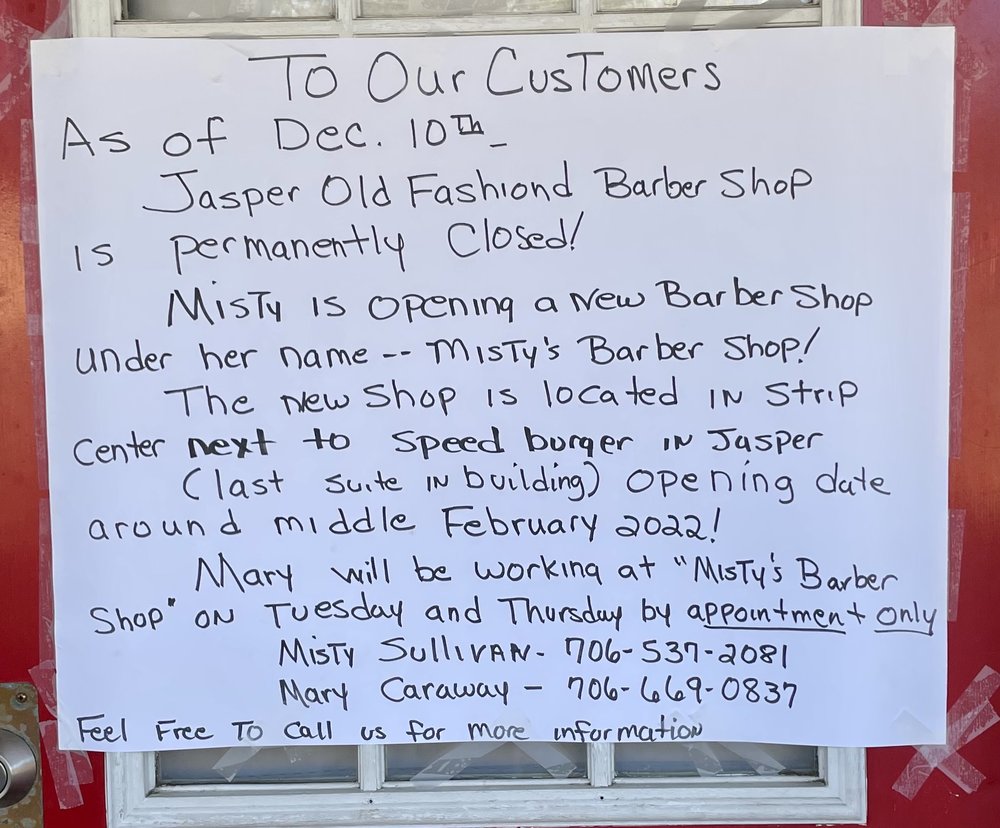 To Our Customers
As of Dec. 10th
Jasper Old Fashiond Barber Shop
is permanently Closed!
Misty is opening a New Barber Shop
under her name -- Misty's Barber Shop!
The new Shop is located in Strip
Center next to Speed burger in Jasper
(last suite in building) opening date
around middle February 2022!
Mary will be working at "Misty's Barber
Shop" on Tuesday and Thursday by appointment only
Misty Sullivan - 706-537-2081
Mary Caraway - 706-669-0837
Feel Free To Call us for more information